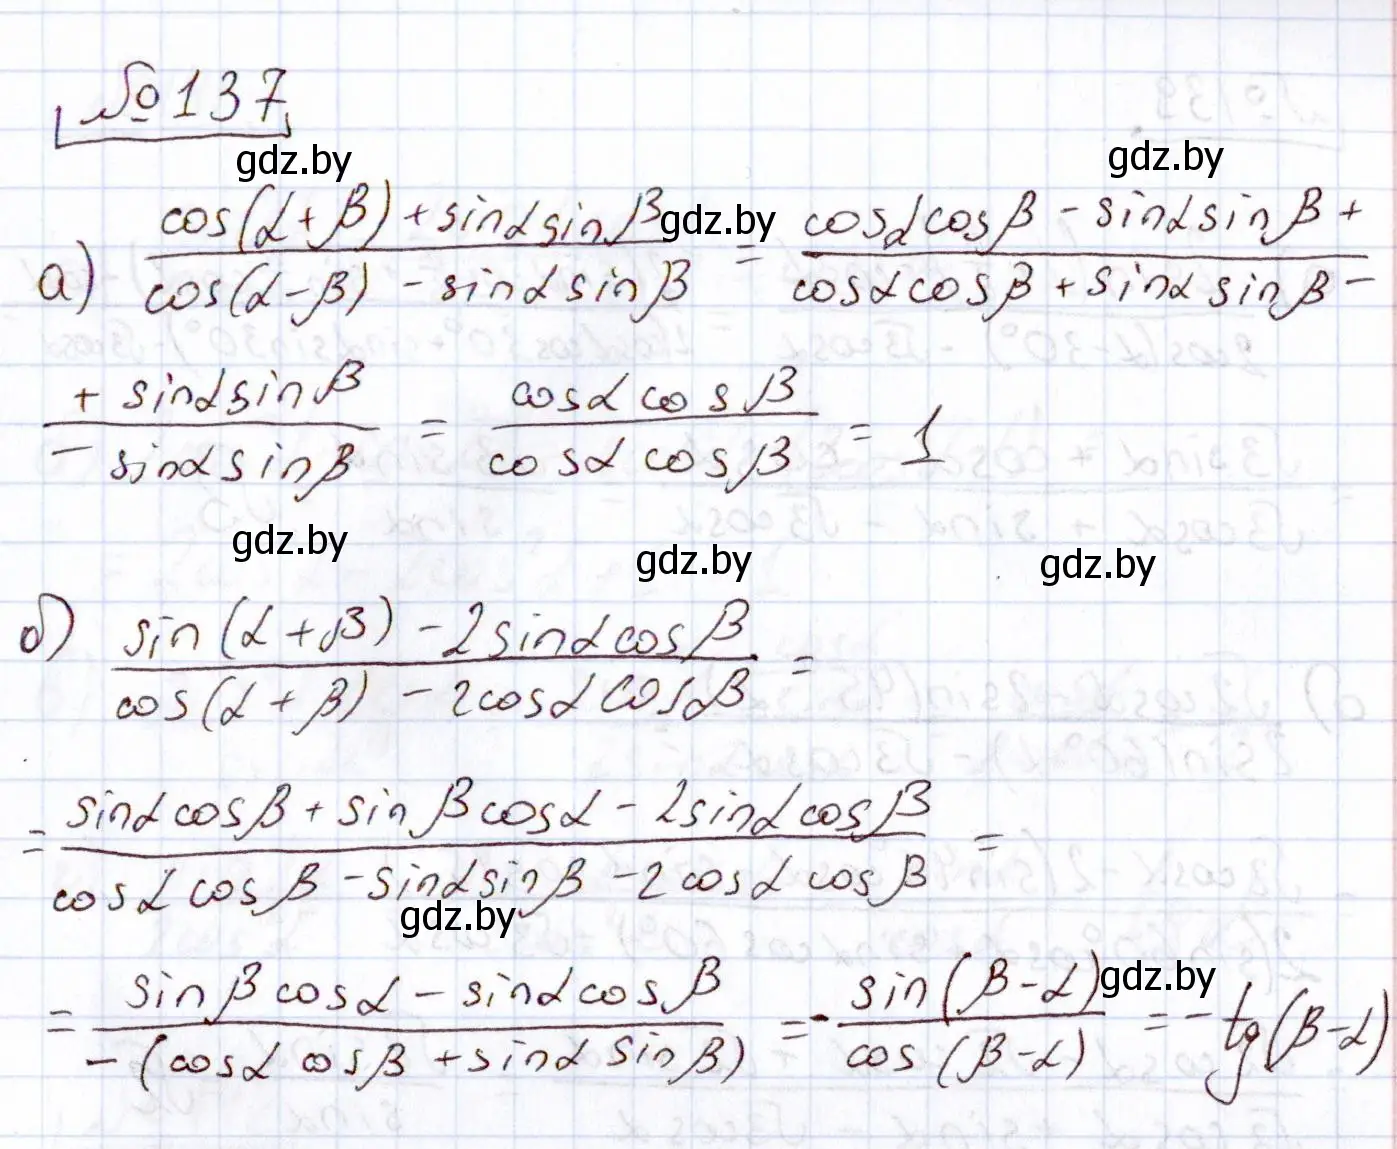 №137
gdz.by gdz.by
а) (cos(α+β)+sinα sinβ)/(cos(α-β)-sinα sinβ) gdz.by = (cosα cosβ - sinα sinβ +)/(cosα cosβ + sinα sinβ -)
(+ sinα sinβ)/(- sinα sinβ) = (cosα cosβ)/(cosα cosβ) = 1
gdz.by gdz.by gdz.by
б) (sin(α+β) - 2sinα cosβ)/(cos(α+β) - 2cosα cosβ) =
= (sinα cosβ + sinβ cosα - 2sinα cosβ)/(cosα cosβ - sinα sinβ - 2cosα cosβ) =
gdz.by
= (sinβ cosα - sinα cosβ)/(-(cosα cosβ + sinα sinβ)) = - (sin(β-α))/(cos(β-α)) = - tg(β-α)
gdz.by